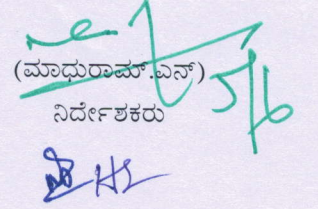 (ಮಾಧುರಾಮ್.ಎನ್)
ನಿರ್ದೇಶಕರು
5/6